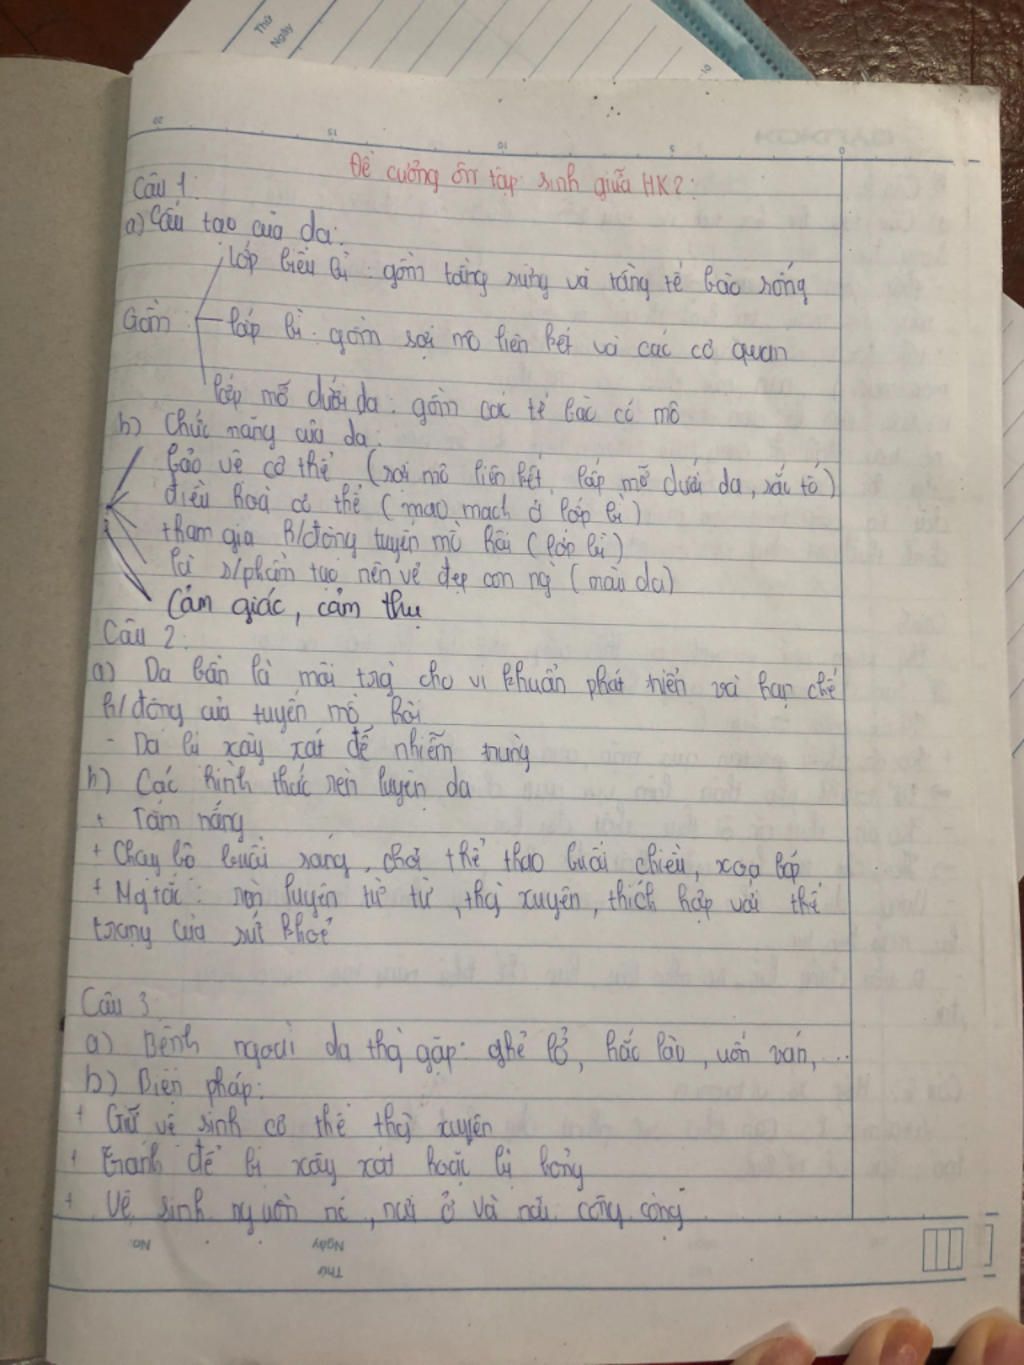 Thứ
Ngày
Đề cương ôn tập sinh giữa HK2:
Câu 1:
a) Cấu tạo của da:
lớp biểu bì: gồm tầng sừng và tầng tế bào sống
Gồm: lớp bì: gồm sợi mô liên kết và các cơ quan
lớp mỡ dưới da: gồm các tế bào có mô
b) Chức năng của da:
bảo vệ cơ thể (sợi mô liên kết, lớp mỡ dưới da, sắc tố)
điều hoà cơ thể (mao mạch ở lớp bì)
tham gia h/động tuyến mồ hôi (lớp bì)
là s/phẩm tạo nên vẻ đẹp con ng` (màu da)
Cảm giác, cảm thụ
Câu 2:
a) Da bẩn là môi trg` cho vi khuẩn phát triển và hạn chế
h/động của tuyến mồ hôi
- Da bị xây xát dễ nhiễm trùng
b) Các hình thức rèn luyện da
+ Tắm nắng
+ Chạy bộ buổi sáng, chơi thể thao buổi chiều, xoa bóp
+ Ng tắc: rèn luyện từ từ, thg` xuyên, thích hợp với thể
trạng của sức khoẻ
Câu 3:
a) Bệnh ngoài da thg` gặp: ghẻ lở, hắc lào, uốn ván,...
b) Biện pháp:
+ Giữ vệ sinh cơ thể thg` xuyên
+ tránh để bị xây xát hoặc bị bỏng
+ Vệ sinh nguồn nc, nơi ở và nơi công cộng
No.
Ngày
Thứ